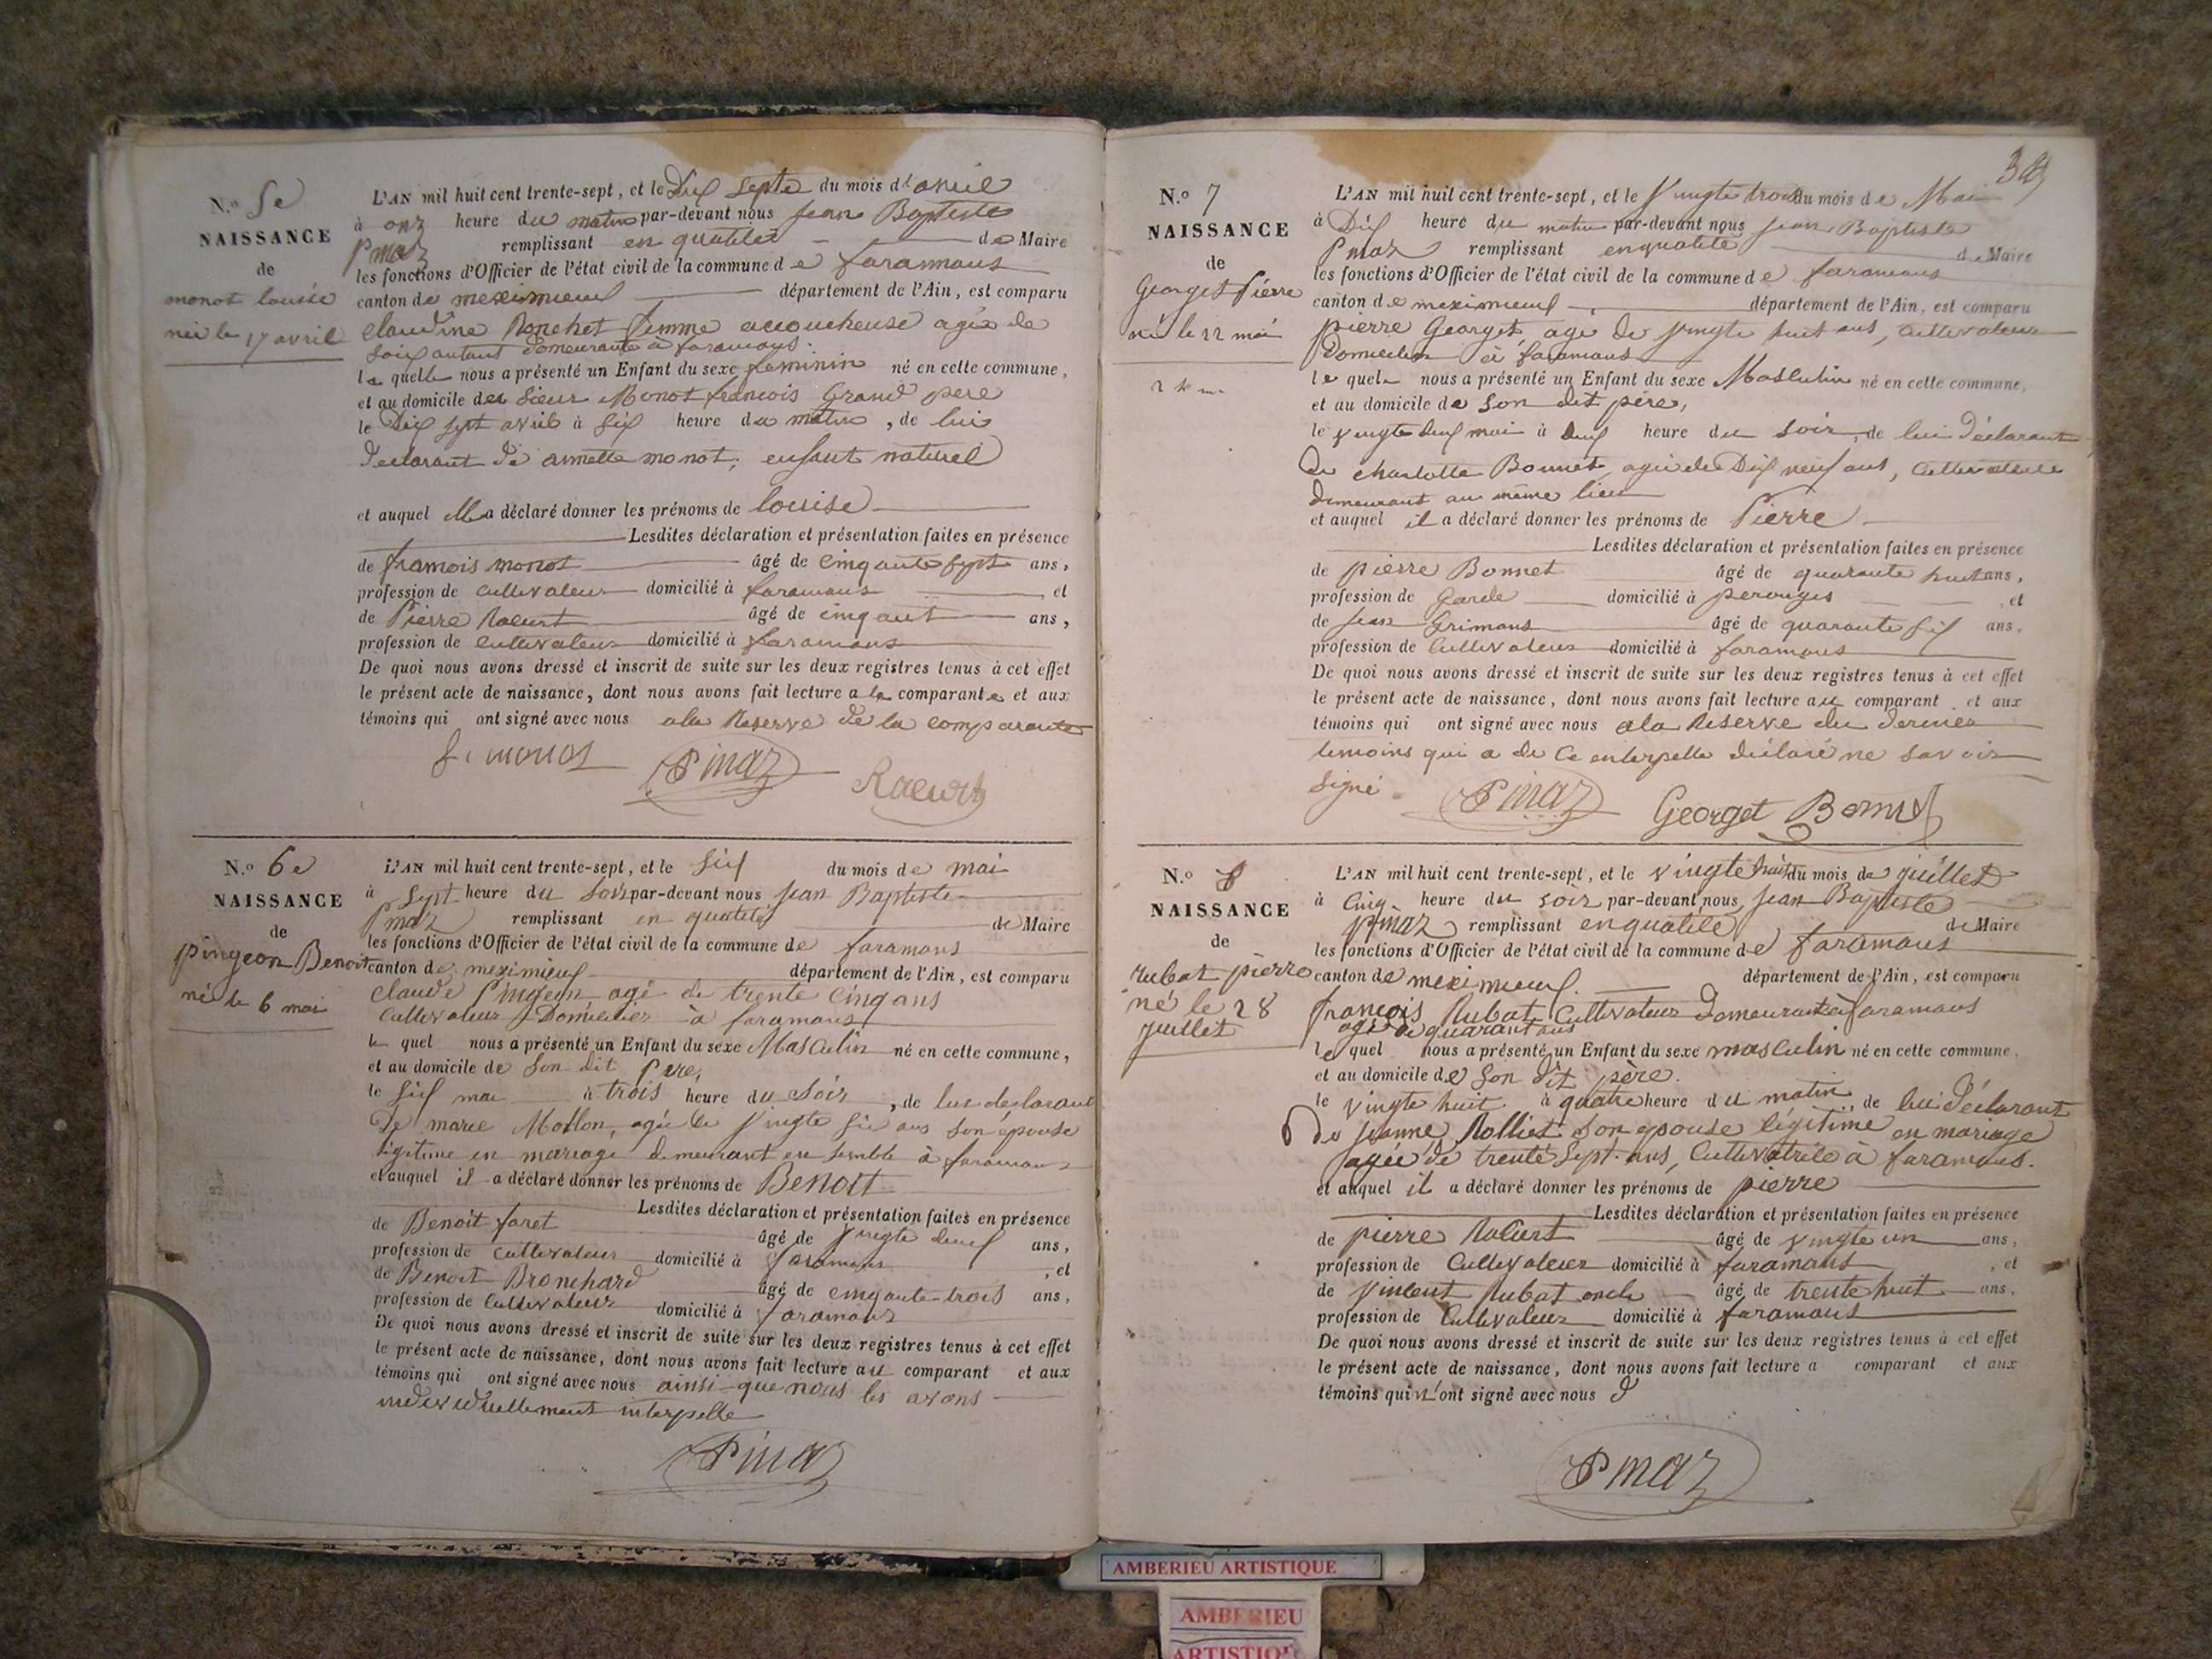 N.o 5e
NAISSANCE
de
monot louise
née le 17 avril
L'AN mil huit cent trente-sept, et le Dix septe du mois d'avril
à onz heure du matin par-devant nous jean Baptiste
Pinaz remplissant en qualité de Maire
les fonctions d'Officier de l'état civil de la commune de faramans
canton de meximieux département de l'Ain, est comparu
claudine Ronchet femme accoucheuse agée de
soixantans demeurante à faramans.
la quelle nous a présenté un Enfant du sexe feminin né en cette commune,
et au domicile des sieur Monot francois Grand pere
le Dix sept avril à six heure du matin, de lui
declarant de annette monot; enfant naturel
et auquel elle a déclaré donner les prénoms de louise
Lesdites déclaration et présentation faites en présence
de framois monot âgé de cinqante sept ans,
profession de cultivateur domicilié à faramans et
de Pierre Raeurt âgé de cinqant ans,
profession de cultivateur domicilié à faramans
De quoi nous avons dressé et inscrit de suite sur les deux registres tenus à cet effet
le présent acte de naissance, dont nous avons fait lecture a la comparante et aux
témoins qui ont signé avec nous ala Reserve de la comparante
f. monot Pinaz Raeurt
N.o 6e
NAISSANCE
de
pingeon Benoit
né le 6 mai
L'AN mil huit cent trente-sept, et le six du mois de mai
à sept heure du soir par-devant nous jean Baptiste
Pinaz remplissant en qualité de Maire
les fonctions d'Officier de l'état civil de la commune de faramans
canton de meximieux département de l'Ain, est comparu
claude Pingeon agé de trente cinq ans
cultivateur Domicilier à faramans
le quel nous a présenté un Enfant du sexe Masculin né en cette commune,
et au domicile de son dit Pere,
le six mai à trois heure du soir, de lui declarant
De marie Mollon, agée de vingte six ans son epouse
légitime en mariage demeurant en semble à faramans
et auquel il a déclaré donner les prénoms de Benoit
Lesdites déclaration et présentation faites en présence
de Benoit faret âgé de vingte deux ans,
profession de cultivateur domicilié à faramans, et
de Benoit Bronchard âgé de cinqante-trois ans,
profession de cultivateur domicilié à faramans
De quoi nous avons dressé et inscrit de suite sur les deux registres tenus à cet effet
le présent acte de naissance, dont nous avons fait lecture au comparant et aux
témoins qui ont signé avec nous ainsi que nous les avons
individuellement interpelle
Pinaz
N.o 7
NAISSANCE
de
Georget Pierre
né le 22 mai
L'AN mil huit cent trente-sept, et le vingte trois du mois de Mai
à Dix heure du matin par-devant nous jean Baptiste
Pinaz remplissant enqualité de Maire
les fonctions d'Officier de l'état civil de la commune de faramans
canton de meximieux département de l'Ain, est comparu
pierre Georget age de vingte huit ans, cultivateur
Domicilier à faramans
le quel nous a présenté un Enfant du sexe Masculin né en cette commune,
et au domicile de son dit père,
le vingte deux mai à deux heure du soir, de lui déclarant
de charlotte Bonnet, agée de Dix neuf ans, cultivateure
demeurant au même lieu
et auquel il a déclaré donner les prénoms de Pierre
Lesdites déclaration et présentation faites en présence
de pierre Bonnet âgé de quarante huit ans,
profession de Garde domicilié à perouges, et
de jean Grimans âgé de quarante six ans,
profession de cultivateur domicilié à faramans
De quoi nous avons dressé et inscrit de suite sur les deux registres tenus à cet effet
le présent acte de naissance, dont nous avons fait lecture au comparant et aux
témoins qui ont signé avec nous ala Reserve du dernier
temoins qui a de ce enterpelle déclaré ne savoir
signé. Pinaz Georget Bonnet
N.o 8
NAISSANCE
de
rubat pierre
né le 28
juillet
L'AN mil huit cent trente-sept, et le vingte huit du mois de juillet
à cinq heure du soir par-devant nous, jean Baptiste
Pinaz remplissant enqualité de Maire
les fonctions d'Officier de l'état civil de la commune de faramans
canton de meximieux département de l'Ain, est comparu
françois Rubat cultivateur demeurant à faramans
agé de quarant ans
le quel nous a présenté un Enfant du sexe masculin né en cette commune,
et au domicile de son dit père.
le vingte huit à quatre heure du matin, de lui déclarant
De jeanne Rolliet son epouse légitime en mariage
agée de trente sept ans, cultivatrice à faramans.
et auquel il a déclaré donner les prénoms de pierre
Lesdites déclaration et présentation faites en présence
de pierre Raeurt âgé de vingte un ans,
profession de cultivateur domicilié à faramans, et
de vincent Rubat oncle âgé de trente huit ans,
profession de cultivateur domicilié à faramans
De quoi nous avons dressé et inscrit de suite sur les deux registres tenus à cet effet
le présent acte de naissance, dont nous avons fait lecture a comparant et aux
témoins qui n'ont signé avec nous
Pinaz
AMBERIEU ARTISTIQUE
AMBERIEU
ARTISTIQUE